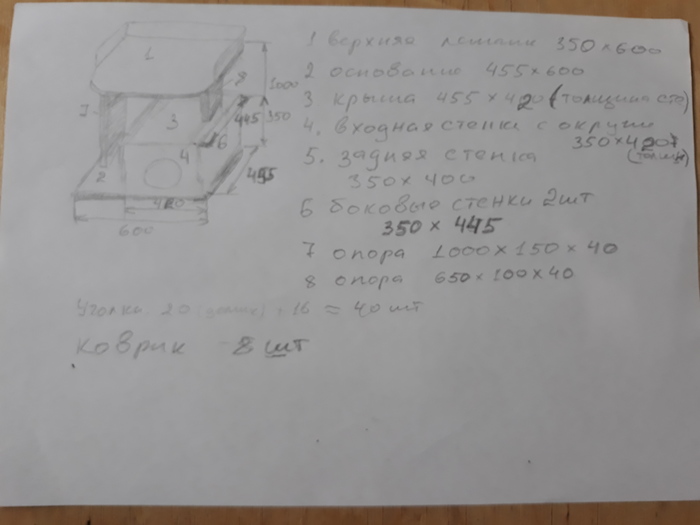 1 верхняя лежанка 350×600
2 основание 455×600
3 крыша 455×420 (толщина сте
4. входная стенка с округи
350×420
5. задняя стенка
350×400
6 боковые стенки 2шт
350 × 445
7 опора 1000×150×40
8 опора 650×100×40
Уголка 20 16 ≈ 40 шт
коврик 8 шт
1
8
1000
7
3
445
350
6
4
2
455
420
600